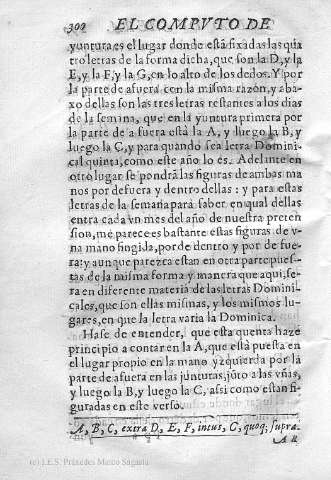 300 EL COMPVTO DE
yuntura es el lugar donde està fixadas las qua
tro letras de la forma dicha, que son la D, y la
E, y la F, y la G, en lo alto de los dedos. Y por
la parte de afuera con la misma razon, y aba-
xo dellas son las tres letras restantes a los dias
de la semana, que en la yuntura primera por
la parte de a fuera està la A, y luego la B, y
luego la C, y para quando sea letra Domini-
cal quinta, como este año lo es. Adelante en
otro lugar se pondrà las figuras de ambas ma
nos por defuera y dentro dellas: y para estas
letras de la semana para saber en qual dellas
entra cada vn mes del año de nuestra preten
sion, me parece es bastante estas figuras de v-
na mano fingida, por de dentro y por de fue-
ra: y aunque parezca estan en otra parte pues-
tas de la misma forma y manera que aqui, se-
ra en diferente materia de las letras Domini-
cales, que son ellas mismas, y los mismos lu-
gares, en que la letra varia la Dominica.
Hase de entender, que esta quenta haze
principio a contar en la A, que està puesta en
el lugar propio en la mano yzquierda por la
parte de afuera en las junturas, jũto a las vñas,
y luego la B, y luego la C, assi como estan fi-
guradas en este verso.
A, B, C, extra D, E, F, intus, G, quoq; supra.
A li
(c) I.E.S. Práxedes Mateo Sagasta